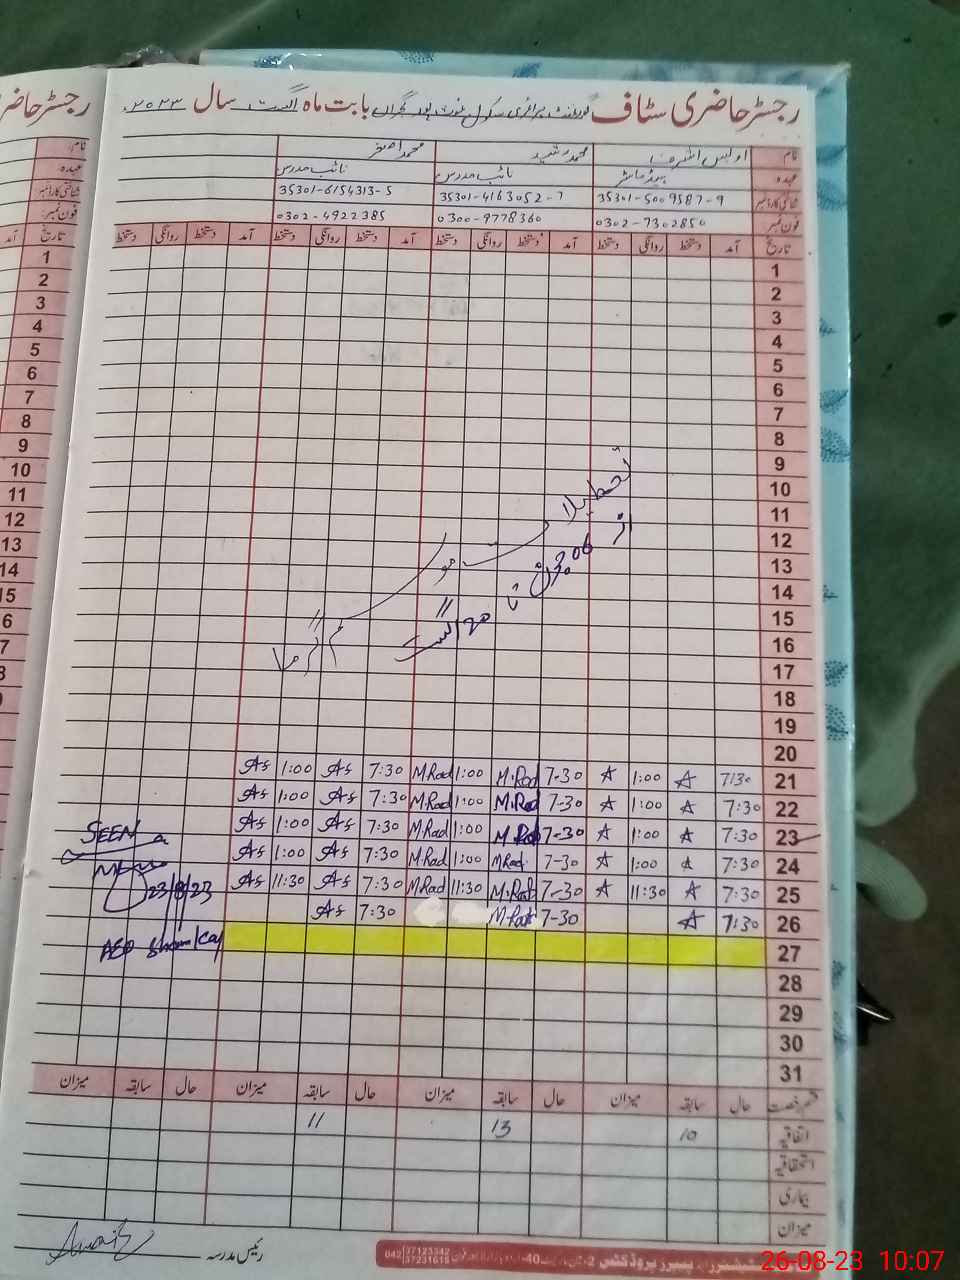 رجسٹر حاضری سٹاف گورنمنٹ پرائمری سکول غوث پور گجراں بابت ماہ اگست سال ۲۰۲۳
رجسٹر حاضر
نام اویس اشرف محمد رشید محمد اصغر
عہدہ ہیڈ ماسٹر نائب مدرس نائب مدرس
شناختی کارڈ نمبر 35301-5009587-9 35301-4163052-7 35301-6154313-5
فون نمبر: 0302-7302850 0300-9778360 0302-4922385
تاریخ آمد دستخط روانگی دستخط آمد دستخط روانگی دستخط آمد دستخط روانگی دستخط آمد دستخط روانگی دستخط
1
2
3
4
5
6
7
8
9
10
11
12
13
14
15
16
17
18
19
20
تعطیلات موسم گرما
از 06 جون تا اگست
21 7:30 1:00 7-30 M.Rad 1:00 M.Rad 7:30 As 1:00 As
22 7:30 1:00 7-30 M.Rad 1:00 M.Rad 7:30 As 1:00 As
23 7:30 1:00 7-30 M.Rad 1:00 M.Rad 7:30 As 1:00 As
24 7:30 1:00 7-30 M.Rad 1:00 M.Rad 7:30 As 1:00 As
25 7:30 11:30 7-30 M.Rad 11:30 M.Rad 7:30 As 11:30 As
26 7:30 7-30 M.Rad 7:30 As
27
28
29
30
31
SEEN
23/8/23
AEO
قسم رخصت حال سابقہ میزان حال سابقہ میزان حال سابقہ میزان حال سابقہ میزان
اتفاقیہ 10 13 11
استحقاقیہ
بیماری
میزان
رئیس مدرسہ
042 37123342
37231615
26-08-23 10:07